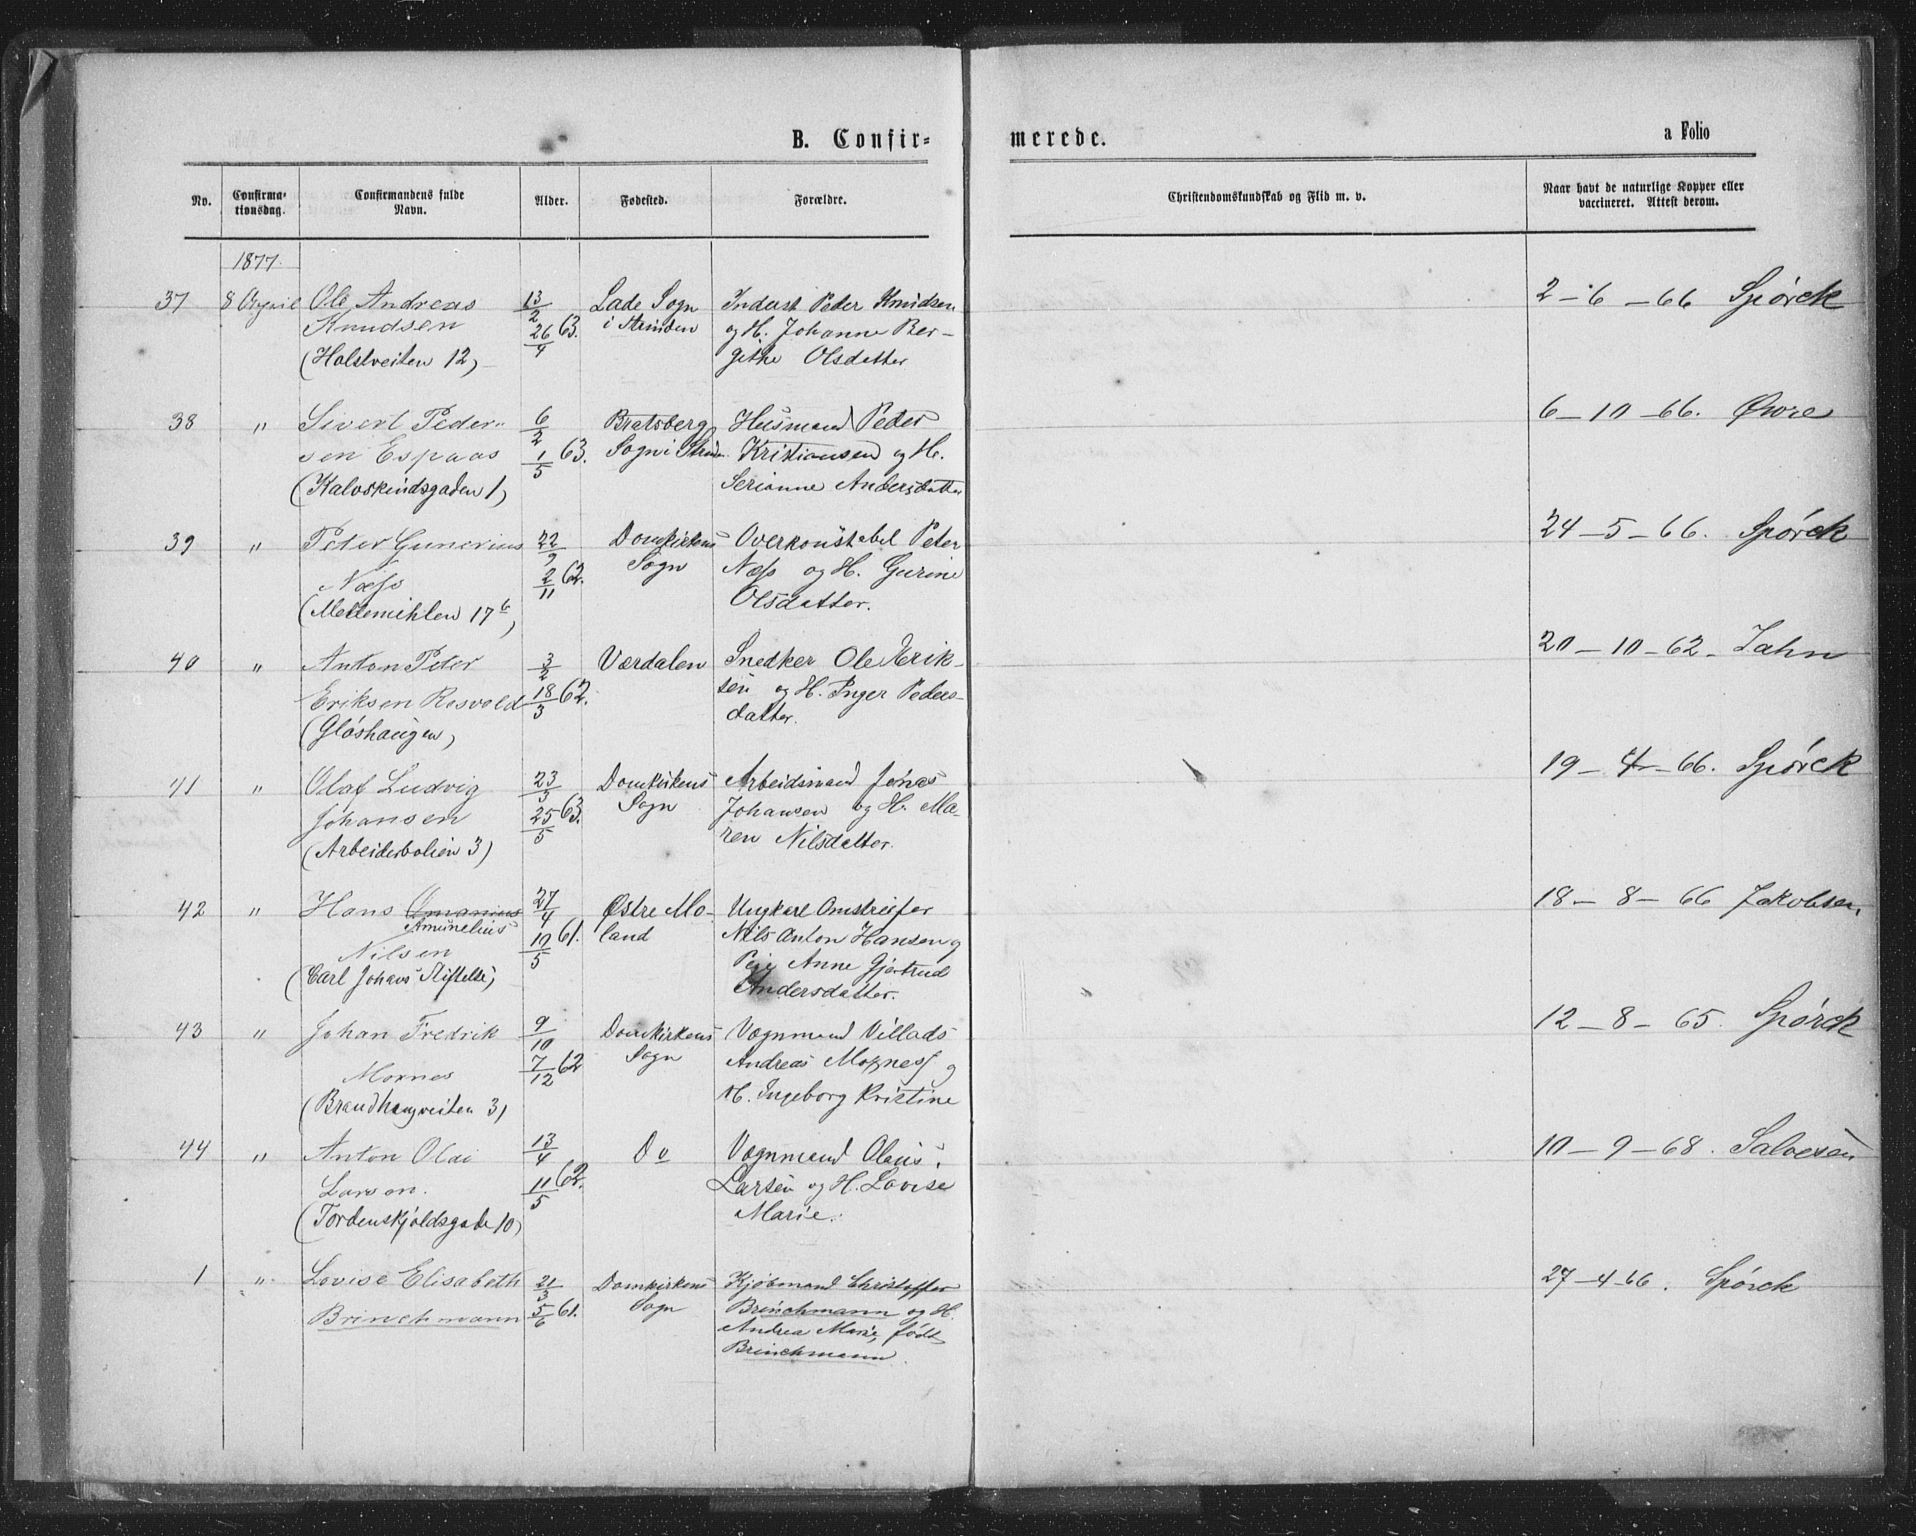 B. Confir-
merede.
a Folio
No.
Confirma-
tionsdag.
Confirmandens fulde
Navn.
Alder.
Fødested.
Forældre.
Christendomskundskab og Flid m. v.
Naar havt de naturlige Kopper eller
vaccineret. Attest derom.
1877.
37 8 April Ole Andreas 13/2 Lade Sogn Inderst Peder Knudsen 2-6-66 Spörck
Knudsen 26/4 63. i Strinden og H. Johanne Ber-
(Holstveiten 12) gethe Olsdatter
38 " Sivert Peder- 6/2 Bratsberg Husmand Peder 6-10-66. Øvre
sen Espaas 1/5 63. Sogn i Strin Kristiansen og H.
(Kalvskindsgaden 1) Serianne Andersdatter
39 " Peter Gunerius 22/9 Domkirkens Overkonstabel Peter 24-5-66. Spörck
Næss 2/11 62. Sogn Næss og H. Gurine
(Mellemihlen 17b) Olsdatter.
40 " Anton Peter 3/2 Værdalen Snedker Ole Erik- 20-10-62. Jahn
Eriksen Rosvold 18/3 62. sen og H. Inger Peders-
(Gløshaugen) datter.
41 " Olaf Ludvig 23/3 Domkirkens Arbeidsmand Jonas 19-4-66. Spörck
Johansen 25/5 63. Sogn Johansen og H. Ma-
(Arbeiderbolien 3) ren Nilsdatter.
42 " Hans 27/4 Østre Mo- Ungkarl Omstreifer 18-8-66 Jakobsen.
Amunelius
Nilsen 10/5 61. land Nils Anton Hansen og
(Carl Johans Stiftelse) Pige Anne Gjertrud
Andersdatter.
43 " Johan Fredrik 9/10 Domkirkens Vognmand Villads 12-8-65. Spörck
Moxnes 7/12 62 Sogn Andreas Moxness og
(Brandhaugveiten 3) H. Ingeborg Kristine
44 " Anton Olai 13/4 Do Vognmand Olaus 10-9-68. Salvesen
Larsen. 11/5 62. Larsen og H. Lovise
(Tordenskjoldsgade 10) Marie.
1 " Lovise Elisabeth 21/3 Domkirkens Kjøbmand Christoffer 27-4-66. Spörck
Brinchmann 5/6 61. Sogn Brinchmann og H.
Andrea Marie, født
Brinchmann.